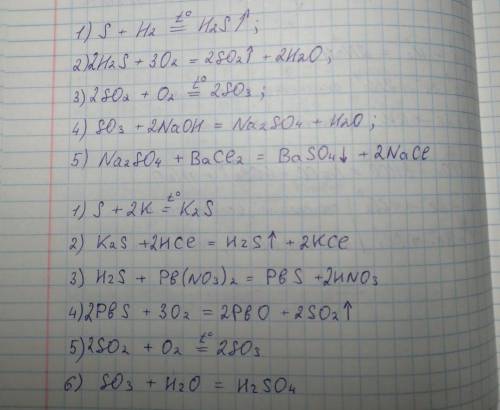 1) S + H₂ =t°= H₂S↑;
2) 2H₂S + 3O₂ = 2SO₂↑ + 2H₂O;
3) 2SO₂ + O₂ =t°= 2SO₃;
4) SO₃ + 2NaOH = Na₂SO₄ + H₂O;
5) Na₂SO₄ + BaCl₂ = BaSO₄↓ + 2NaCl
1) S + 2K =t°= K₂S
2) K₂S + 2HCl = H₂S↑ + 2KCl
3) H₂S + Pb(NO₃)₂ = PbS + 2HNO₃
4) 2PbS + 3O₂ = 2PbO + 2SO₂↑
5) 2SO₂ + O₂ =t°= 2SO₃
6) SO₃ + H₂O = H₂SO₄